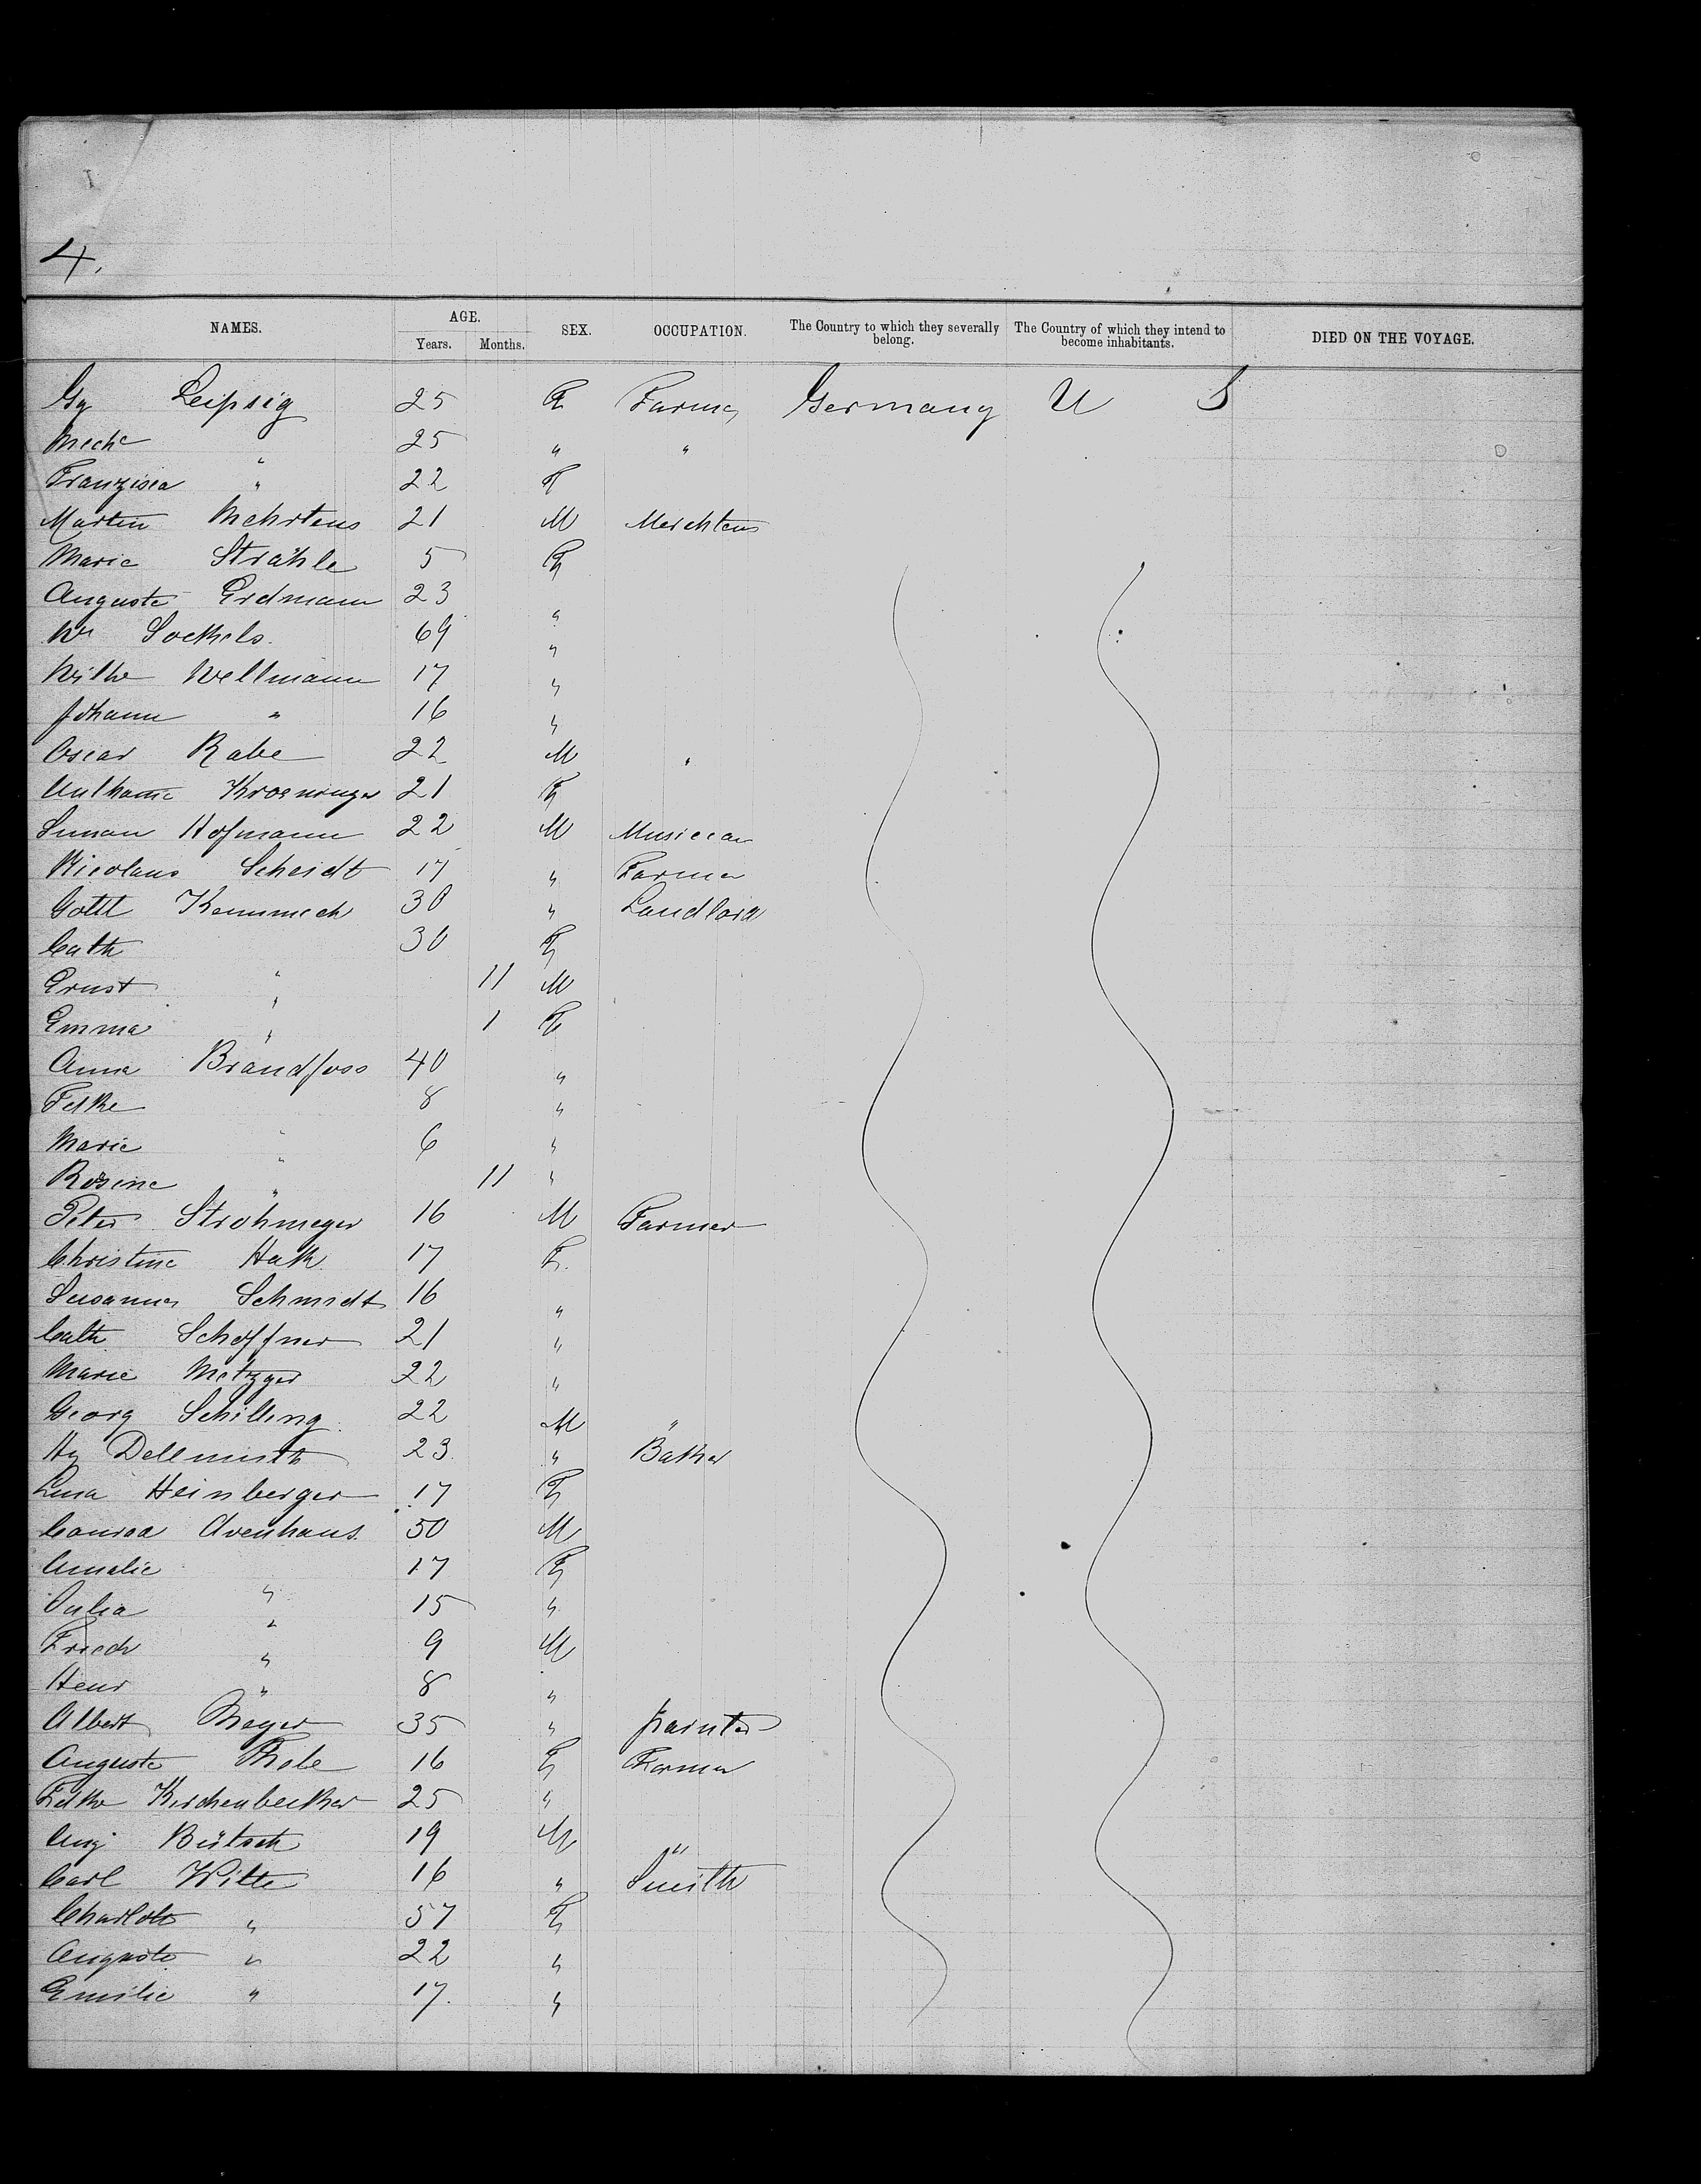 4.
NAMES. AGE. Years. Months. SEX. OCCUPATION. The Country to which they severally belong. The Country of which they intend to become inhabitants. DIED ON THE VOYAGE.
Gg Leipsig 25 Germany U S
25 " "
Franzisca " 22 F
Martin Mehrtens 21 M
Marie Strähle 5 F
Auguste Erdmann 23 "
69 "
Wilhe Wellmann 17 "
Johann " 16 "
Oscar Rabe 22 M "
21 F
Hofmann 22 M Musician
Nicolaus Scheidt 17 " Farmer
Gottl 30 " Landlord
Cath " 30 F
Ernst " 11 M
Emma " 1 F
Anna Brandfoss 40 "
8 "
Marie " 6 "
Rosine " 11 "
Peter Strohmeyer 16 M Farmer
Christine Hak 17 F.
Susanna Schmidt 16 "
Cath Schoffner 21 "
Marie Metzger 22 "
Georg Schilling 22 M "
Hy 23 " Baker
Heinberger 17 F
Conrad Avenhaus 50 M
Amalie " 17 F
Julia " 15 "
Friedr " 9 M
Henr " 8 "
Albert Meyer 35 " painter
Auguste 16 F Farmer
25 "
Aug Bütsch 19 M "
Carl Witte 16 " Smith
Charlott " 57 F
Auguste " 22 "
Emilie " 17. "